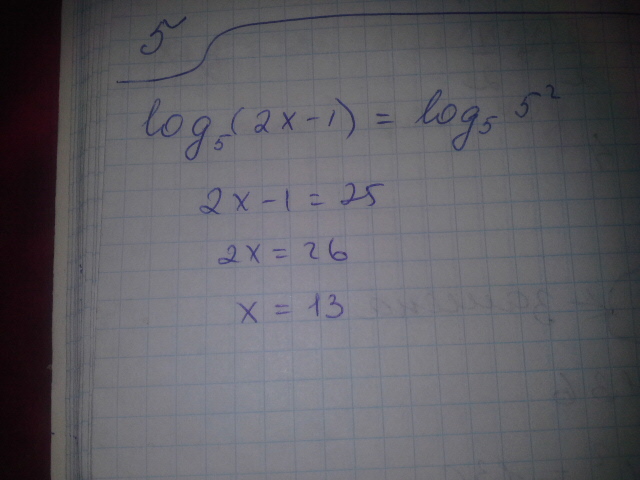 5
log₅(2x-1) = log₅ 5²
2x-1 = 25
2x = 26
x = 13